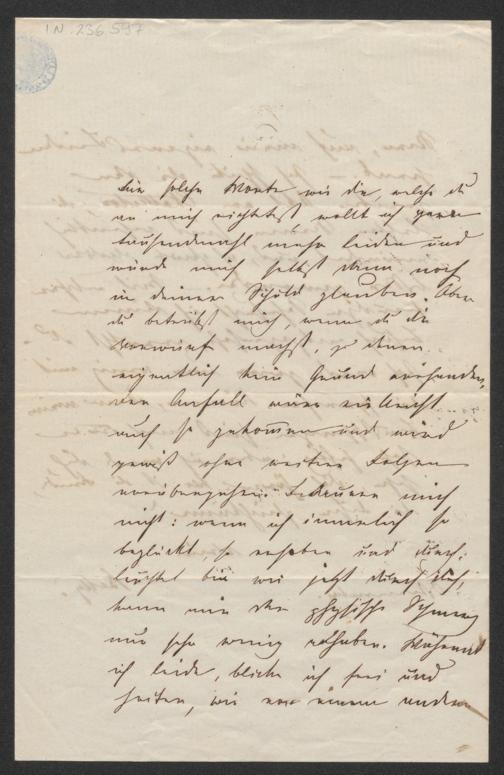 IN. 236.597
für solche Worte wie die, welche du
an mich richtetest wollt ich gerne
tausendmahl mehr leiden und
würde mich selbst dann noch
in deiner Schuld glauben. Aber
du betrübst mich, wenn du dir
Vorwürfe machst, zu denen
eigentlich kein Grund vorhanden,
der Anfall wäre vielleicht
auch so gekommen und wird
gewiß ohne weitere Folgen
vorübergehen. Bedauere mich
nicht: wenn ich innerlich so
beglückt, so erhoben und durch-
leuchtet bin wie jetzt durch dich,
kann mir der physische Schmerz
nur sehr wenig anhaben. Während
ich leide, blicke ich frei und
heiter, wie aus einem andern